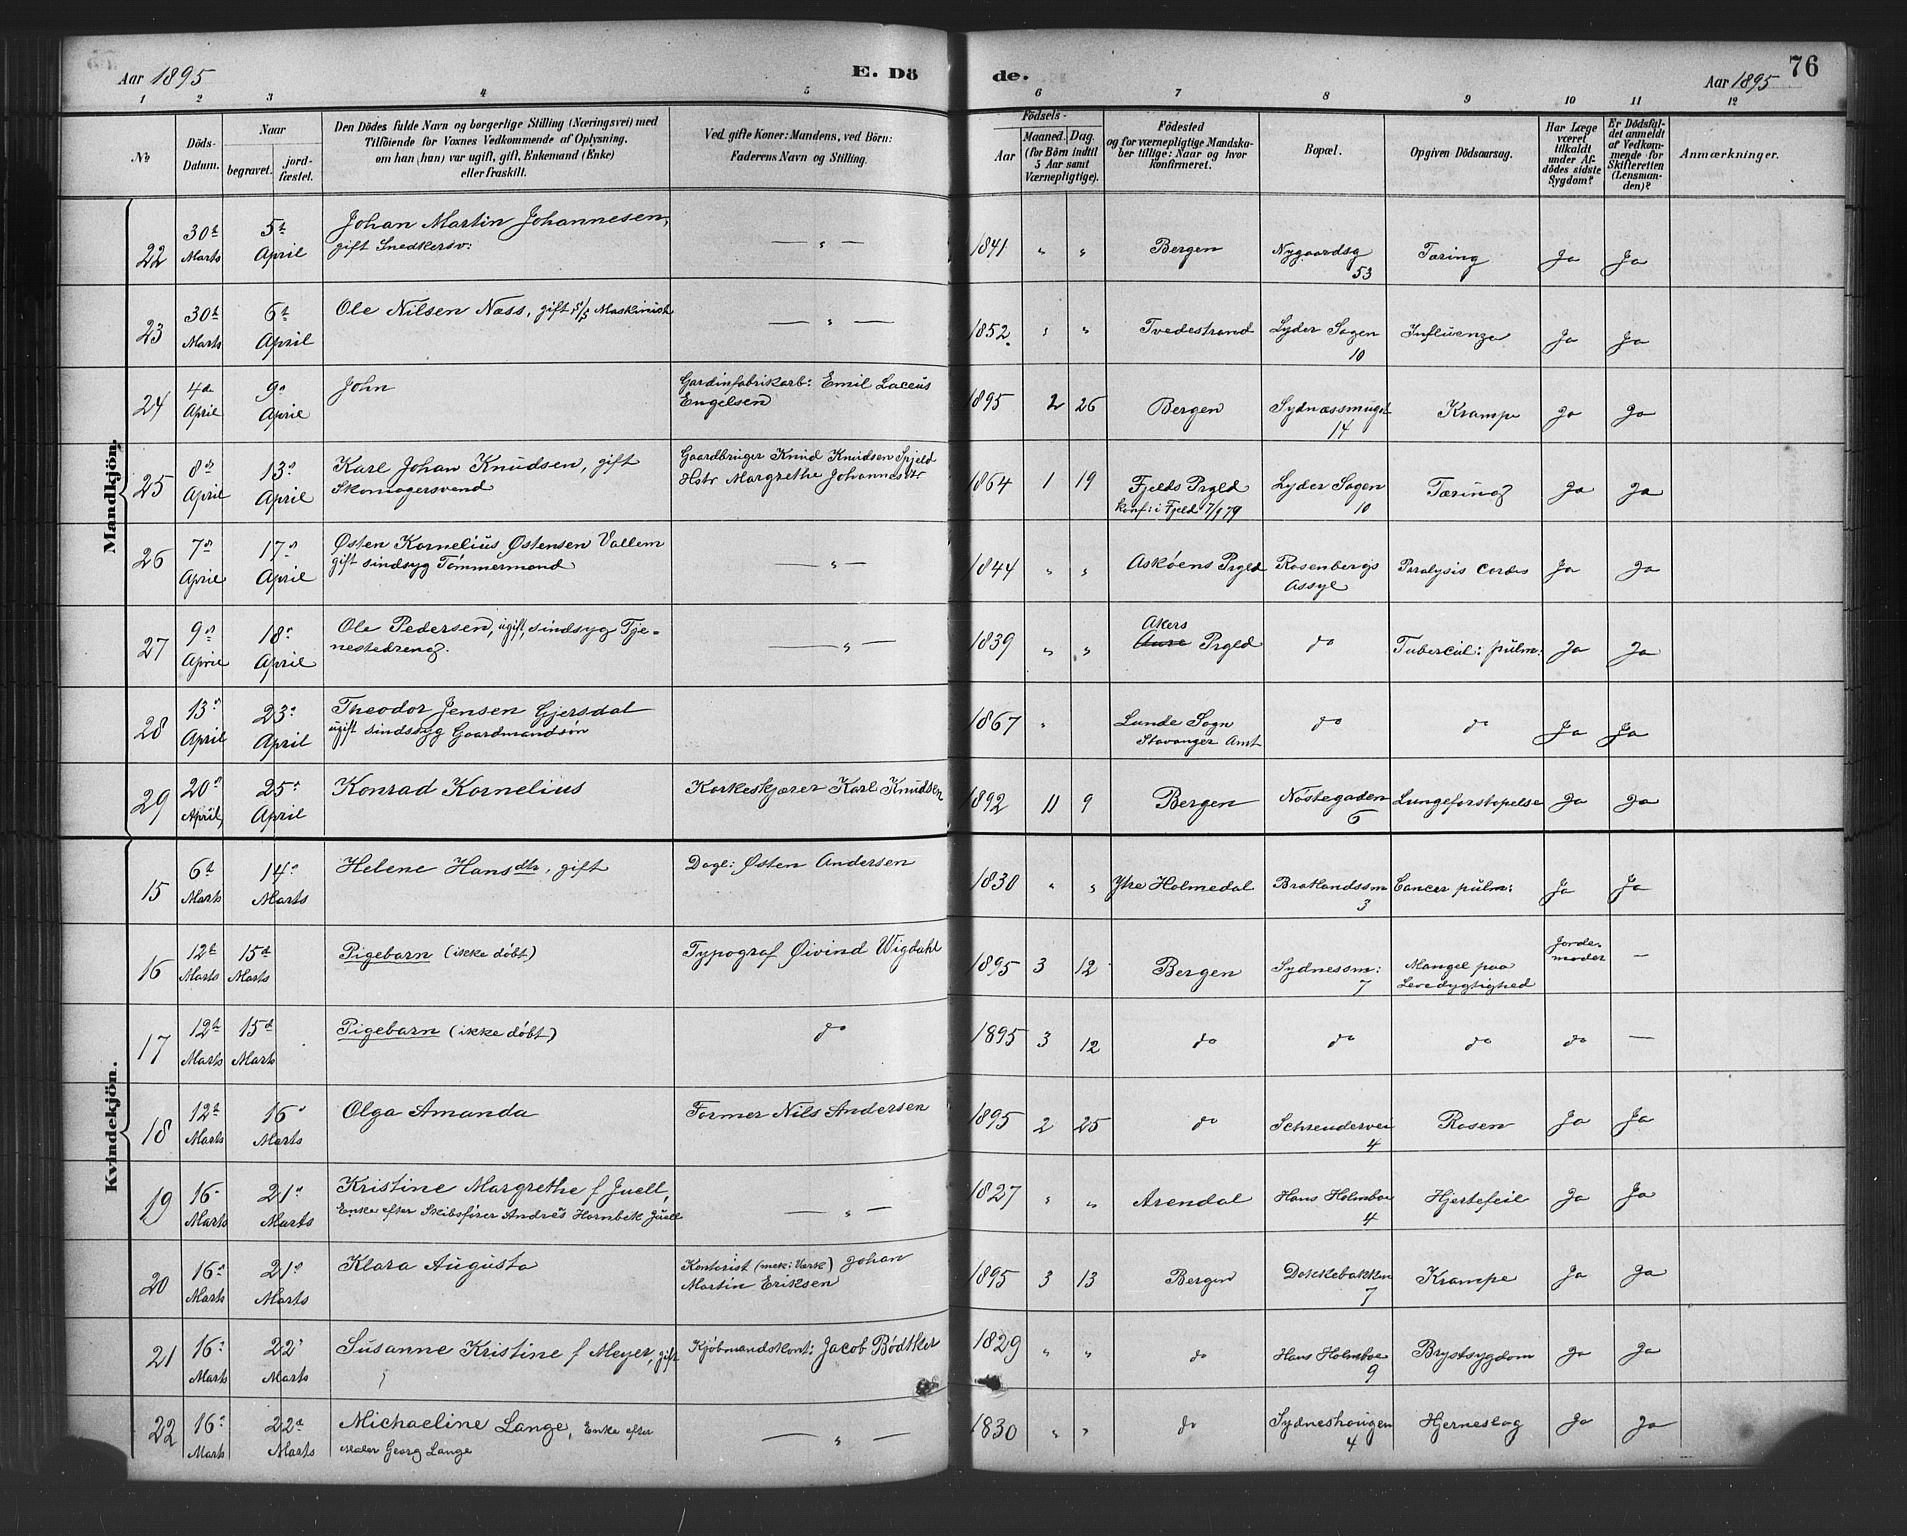 Aar 1895 E. Dö de. Aar 1895 76
1 2 3 4 5 6 7 8 9 10 11 12
No
Döds-Datum.
Naar
begravet.
jord-fæstet.
Den Dödes fulde Navn og borgerlige Stilling (Næringsvei) med
Tilföiende for Voxnes Vedkommende af Oplysning.
om han (hun) var ugift, gift, Enkemand (Enke)
eller fraskilt.
Ved gifte Koner: Mandens, ved Börn:
Faderens Navn og Stilling.
Födsels-
Aar
Maaned. Dag.
(for Börn indtil
5 Aar samt
Værnepligtige).
Födested
og for værnepligtige Mandska-
ber tillige: Naar og hvor
konfirmeret.
Bopæl.
Opgiven Dödsaarsag.
Har Læge
været
tilkaldt
under Af-
dödes sidste
Sygdom?
Er Dödsfal-
det anmeldt
af Vedkom-
mende for
Skifteretten
(Lensman-
den)?
Anmærkninger.
Mandkjön.
22 30te Marts 5te April Johan Martin Johannesen, — " — 1841 " " Bergen Nygaardsg 53 Tæring Ja Ja
gift Snedkersv:
23 30te Marts 6te April Ole Nilsen Næss, gift S/S Maskinist — " — 1852. " " Tvedestrand Lyder Sagen 10 Influenza Ja Ja
24 4de April 9de April John Gardinfabrikarb: Emil Laceüs 1895 2 26 Bergen Sydnæssmuget 14 Krampe Ja Ja
Engelsen
25 8de April 13de April Karl Johan Knudsen, gift Gaardbruger Knud Knudsen Spjeld 1864 1 19 Fjelds Prgld Lyder Sagen 10 Tæring Ja Ja
Skomagersvend Hstr Margrethe Johannesdtr konf: i Fjeld 7/9 79
26 7de April 17de April Østen Kornelius Østensen Vallem — " — 1844 " " Askøens Prgld Rosenbergs Assyl Paralysis cordis Ja Ja
gift sindsyg Tömmermand
27 9de April 18de April Ole Pedersen, ugift, sindsyg Tje- — " — 1839 " " Akers Prgld do Tubercul: pulm: Ja Ja
nestedreng.
28 13de April 23de April Theodor Jensen Gjersdal 1867 " Lunde Sogn do do Ja Ja
ugift sindssyg Gaardmandsøn Stavanger Amt
29 20de April 25de April Konrad Kornelius Korkeskjærer Karl Knudsen 1892 11 9 Bergen Nöstegaden 6 Lungeforstopelse Ja Ja
Kvindekjön.
15 6te Marts 14de Marts Helene Hansdtr, gift Dagl: Østen Andersen 1830 " " Ytre Holmedal Bratlandssm 3 Cancer pulm: Ja Ja
16 12te Marts 15de Marts Pigebarn (ikke döbt) Typograf Øivind Wigdahl 1895 3 12 Bergen Sydnessm: 7 Mangel paa Levedygtighed Jorde-moder —
17 12te Marts 15de Marts Pigebarn (ikke döbt) do 1895 3 12 do do do do —
18 12te Marts 16de Marts Olga Amanda Former Nils Andersen 1895 2 25 do 4 Rosen Ja Ja
19 16de Marts 21de Marts Kristine Margrethe f Juell, — " — 1827 " " Arendal Hans Holmboe 4 Hjertefeil Ja Ja
Enke efter Skibsförer Andres Hornbek Juell
20 16de Marts 21de Marts Klara Augusta Kontorist (mek: Værk) Johan 1895 3 13 Bergen Dokkebakken 7 Krampe Ja Ja
Martin Eriksen
21 16de Marts 22de Marts Susanne Kristine f Meyer, gift Kjöbmandskont: Jacob Bödtker 1829 " " do Hans Holmboe 9 Brystsygdom Ja Ja
22 16de Marts 22de Marts Michaeline Lange, Enke efter — " — 1830 " " do Sydneshaugen 4 Hjerneslag Ja Ja
Maler Georg Lange